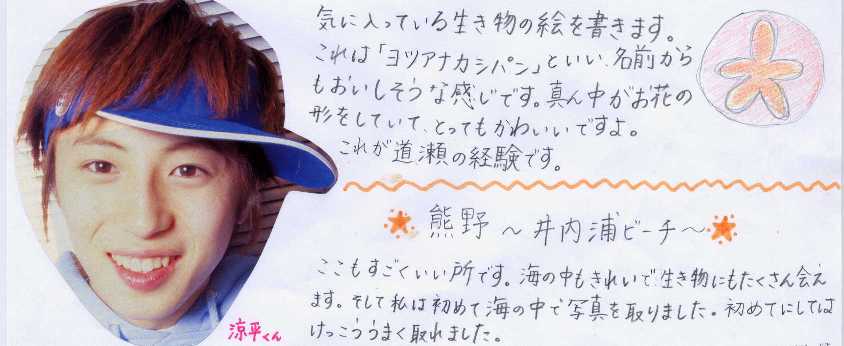 気に入っている生き物の絵を書きます。
これは「ヨツアナカシパン」といい、名前から
もおいしそうな感じです。真ん中がお花の
形をしていて、とってもかわいいですよ。
これが道瀬の経験です。
熊野〜井内浦ビーチ〜
ここもすごくいい所です。海の中もきれいで生き物にもたくさん会え
ます。そして私は初めて海の中で写真を取りました。初めてにしては
けっこううまく取れました。
涼平くん